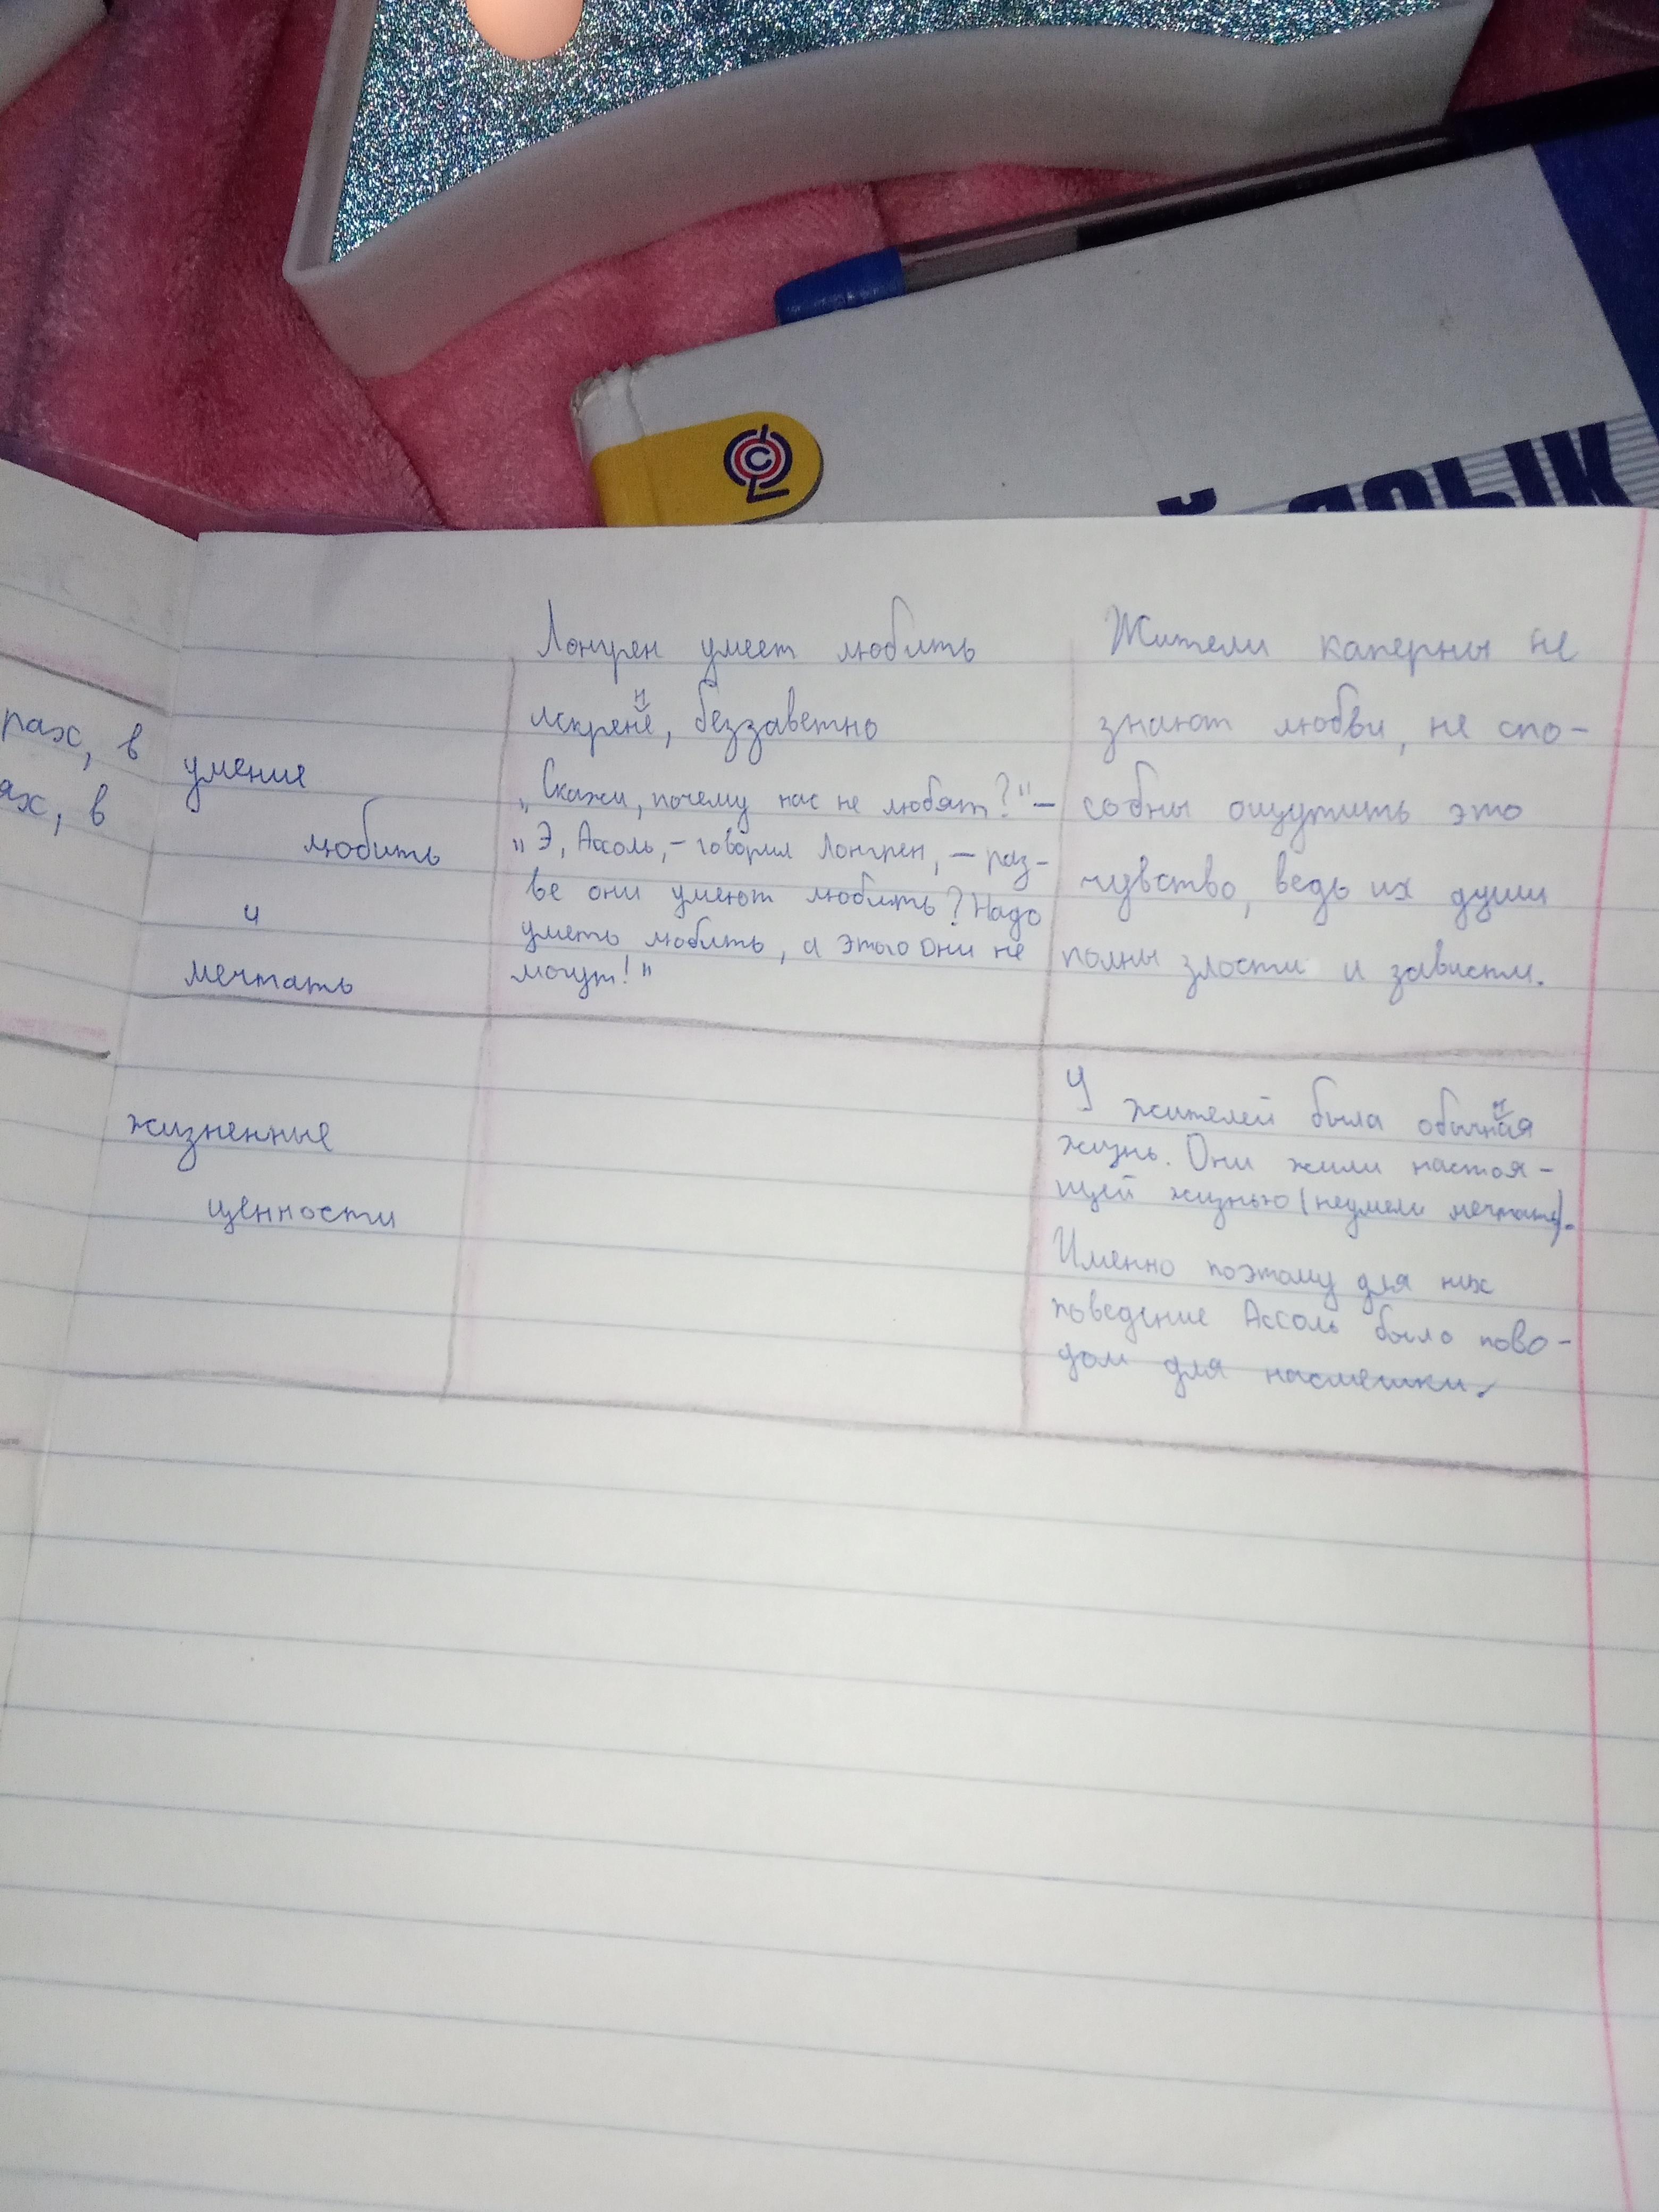 С
й язык
рах, в
ях, в
умение
любить
и
мечтать
Лонгрен умеет любить
искренне, беззаветно
„Скажи, почему нас не любят?" –
„Э, Ассоль, – говорил Лонгрен, – раз-
ве они умеют любить? Надо
уметь любить, а этого они не
могут!"
Жители каперны не
знают любви, не спо-
собны ощутить это
чувство, ведь их души
полны злости и зависти.
жизненные
ценности
У жителей была обычная
жизнь. Они жили настоя-
щей жизнью (неумели мечтать).
Именно поэтому для них
поведение Ассоль было пово-
дом для насмешки.